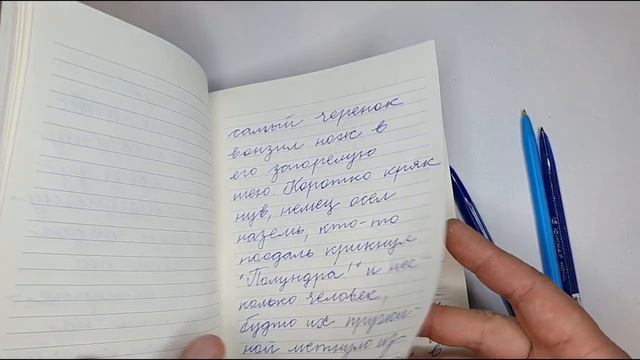 самый черенок
вонзил нож в
его загорелую
шею Коротко кряк
нув, немец осел
наземь, кто-то
поодаль крикнул
"Полундра!" и нес
колько человек,
будто их пружи
ной метнуло из
в